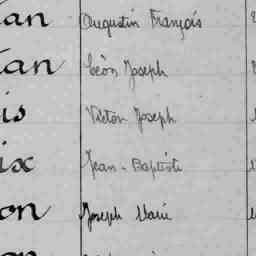 an Augustin François
an Léon Joseph
is Victon Joseph
ix Jean-Baptiste
on Joseph Marie
on